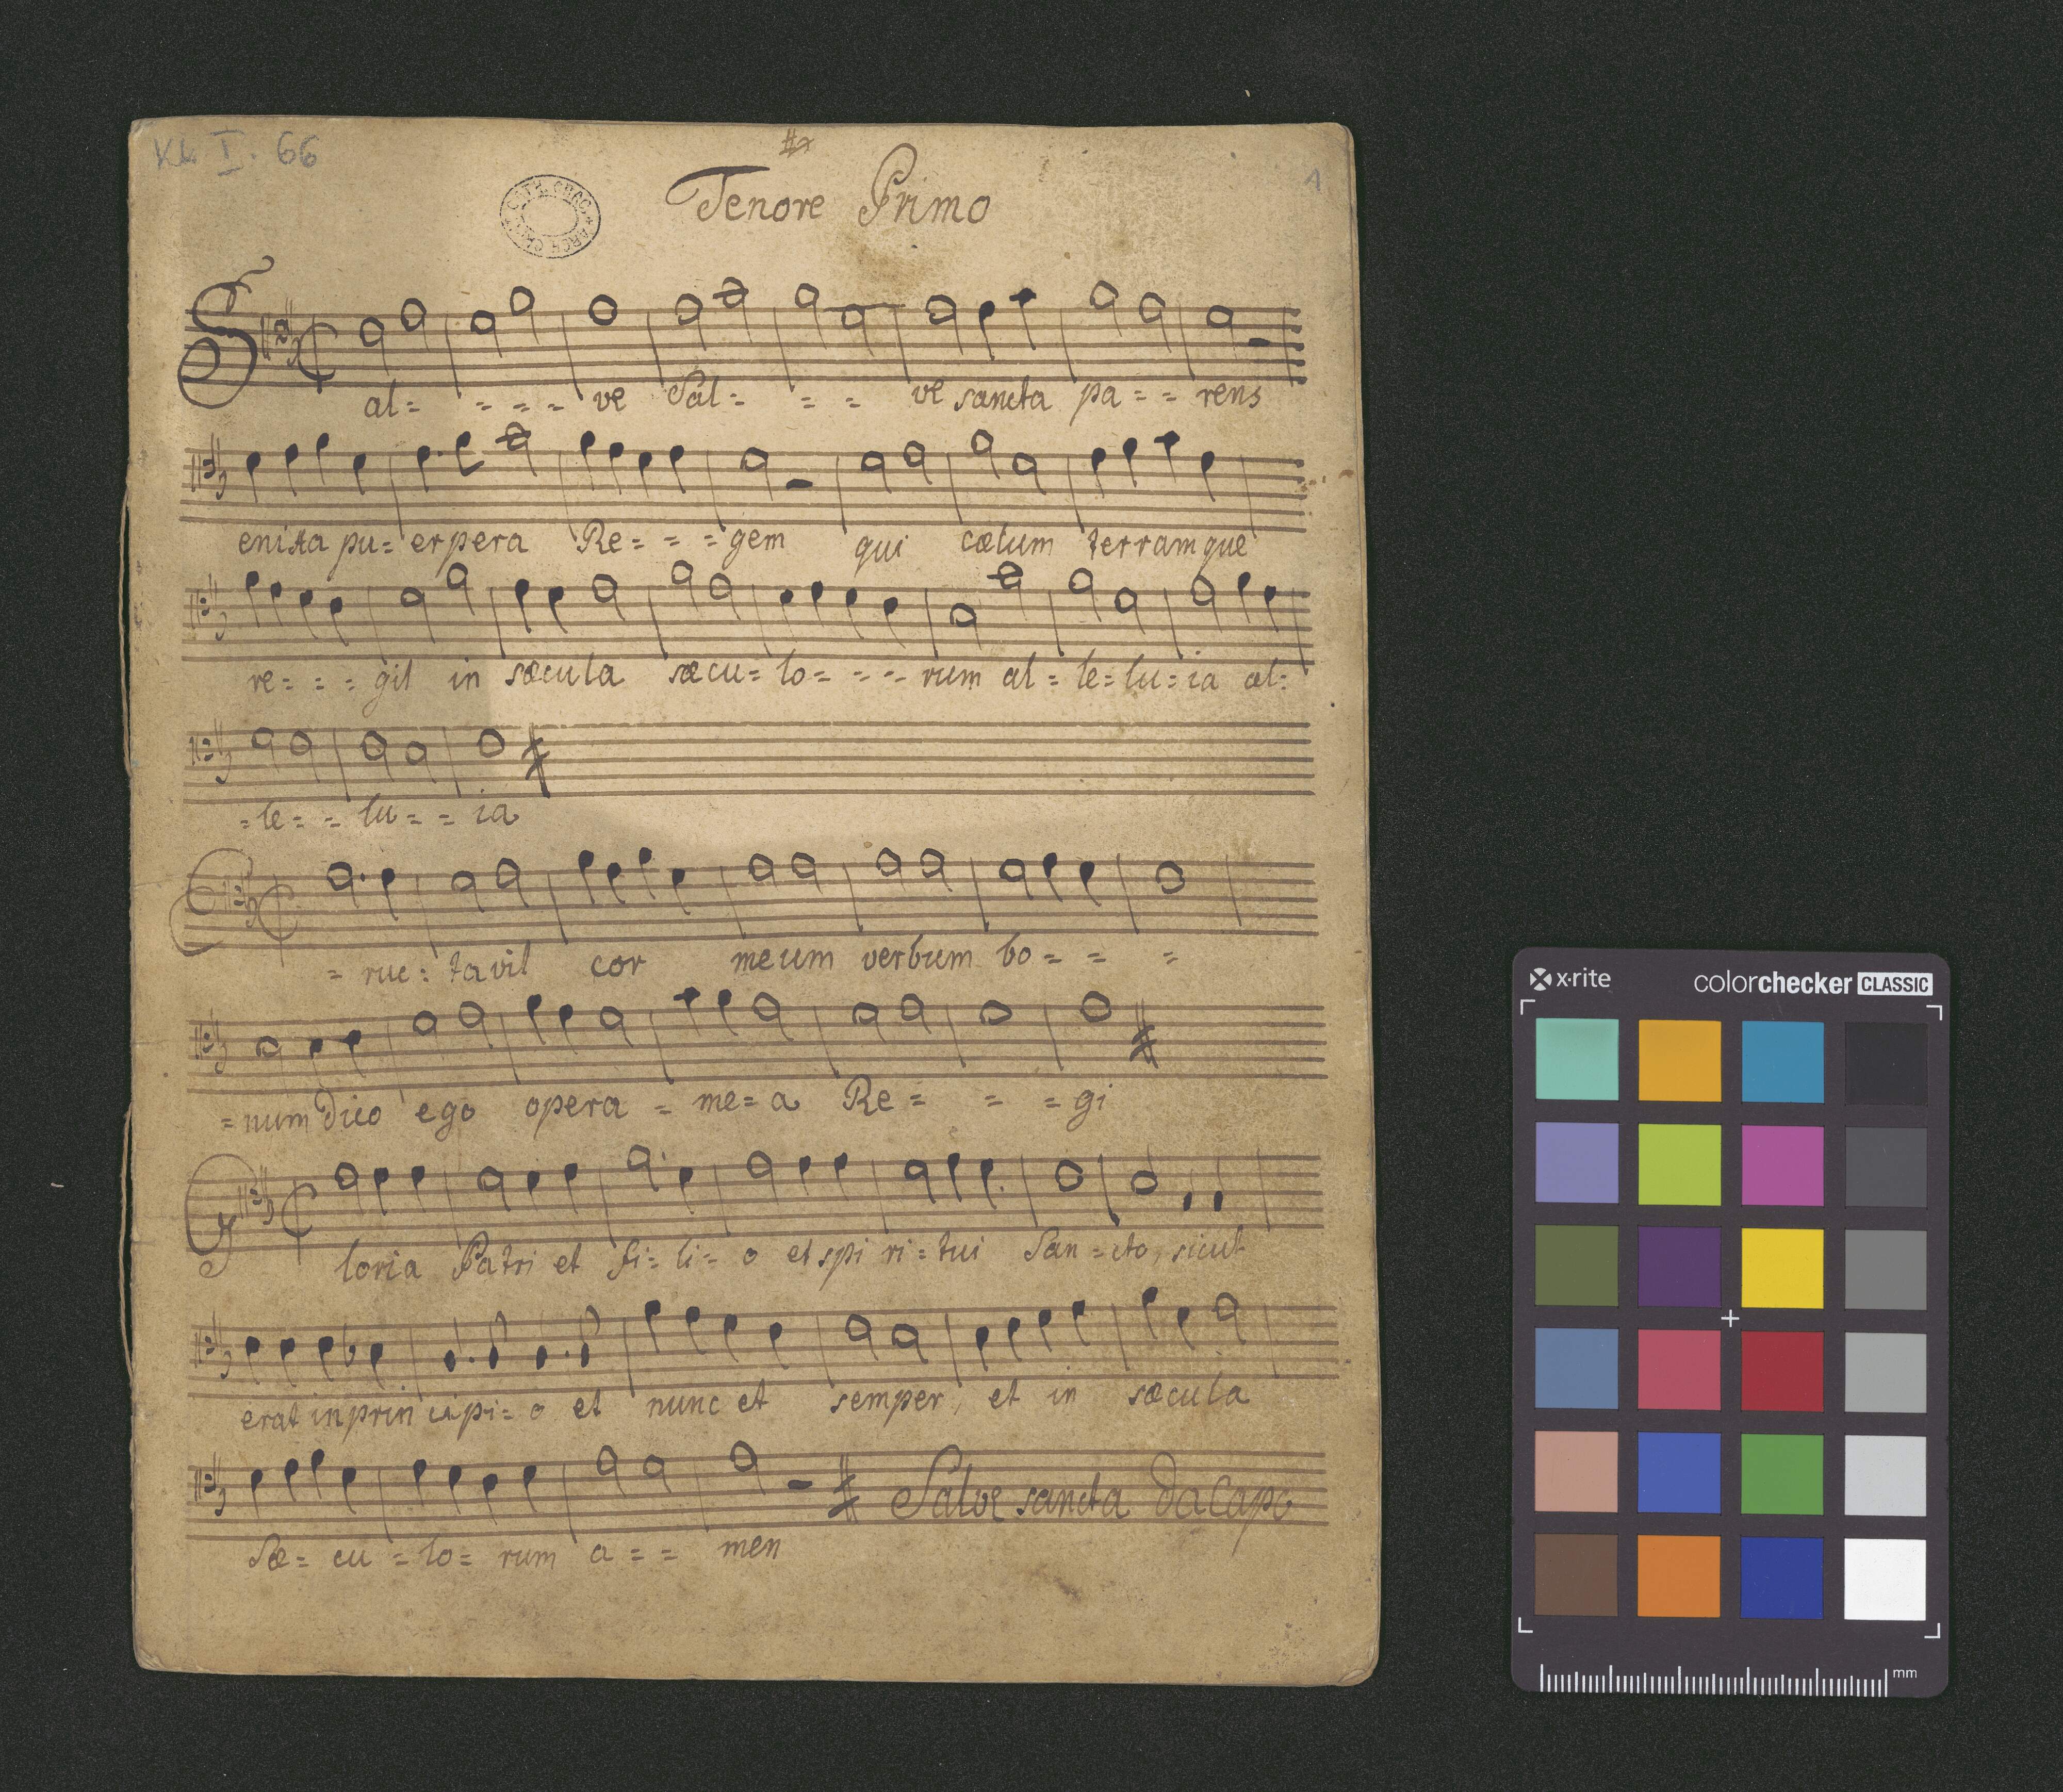 Kk I. 66
1
Tenore Primo
Sal= = = = ve Sal= = = ve sancta pa = = rens
enixa pu= erpera Re= = =gem qui cœlum terramque
re= = = git in sæcula sæcu= lo= = = = rum al= le= lu= ia al=
=le= = lu= = ia
E= ruc= tavit cor meum verbum bo= = =
=num Dico ego opera = me= a Re = = = gi
Gloria Patri et fi= li= o et spi ri= tui San= cto, sicut
erat in prin cipi= o et nunc et semper, et in sæcula
Sæ= cu = lo= rum a = = men Salve sancta Da Capo
x·rite colorchecker CLASSIC
mm